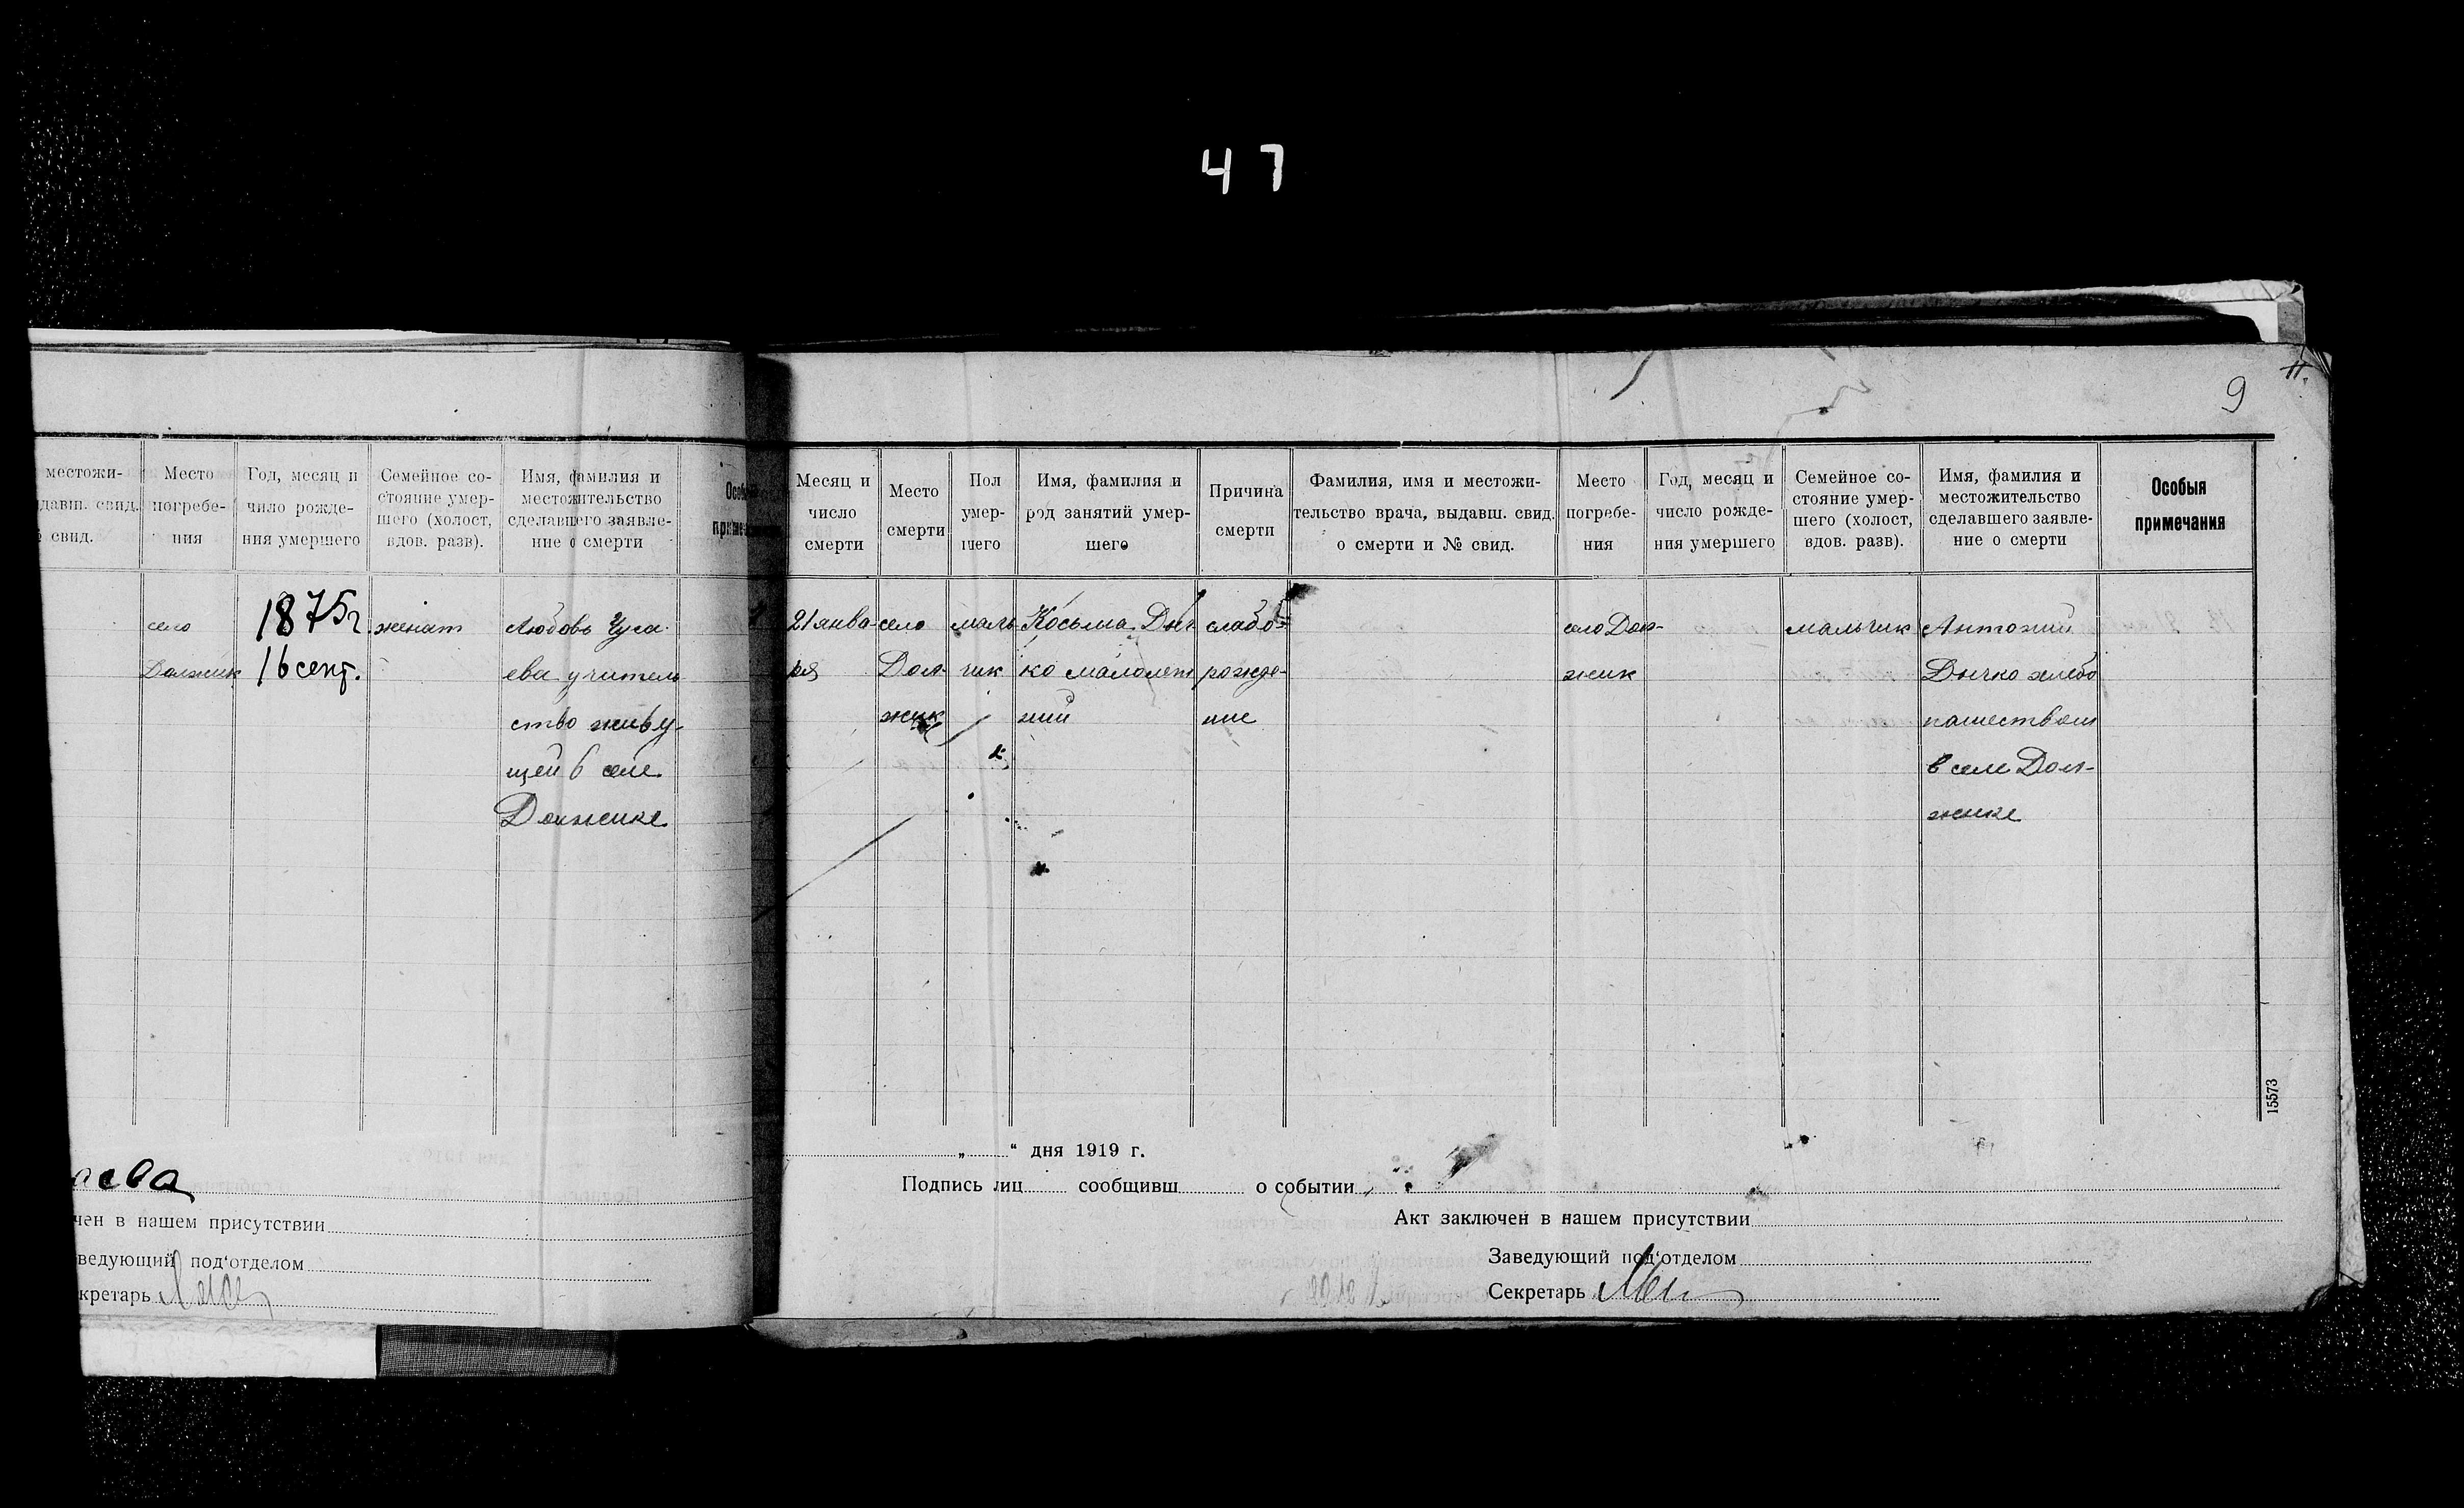 47
местожи-
давш. свид.
свид.
Место
погребе-
ния
Год, месяц и
число рожде-
ния умершего
Семейное со-
стояние умер-
шего (холост,
вдов. разв).
Имя, фамилия и
местожительство
сделавшего заявле-
ние о смерти
село
Должик
1875г.
16 сент.
женат
Любовь Чуга-
ева учитель
ство живу-
щей в селе
Должике
аева
чен в нашем присутствии
ведующий под'отделом
кретарь
9
11.
Месяц и
число
смерти
Место
смерти
Пол
умер-
шего
Имя, фамилия и
род занятий умер-
шего
Причина
смерти
Фамилия, имя и местожи-
тельство врача, выдавш. свид.
о смерти и № свид.
Место
погребе-
ния
Год, месяц и
число рожде-
ния умершего
Семейное со-
стояние умер-
шего (холост,
вдов. разв).
Имя, фамилия и
местожительство
сделавшего заявле-
ние о смерти
Особыя
примечания
21 янва-
ря
село
Дол-
жик
маль
чик
Косьма Дыч
ко малолет
ний
слабо-
рожде-
ние
село Дол-
жик
мальчик
Антоний
Дычко хлебо
пашеством
в селе Дол-
жике
15573
„ “ дня 1919 г.
Подпись лиц сообщивш о событии
Акт заключен в нашем присутствии
Заведующий под'отделом
Секретарь